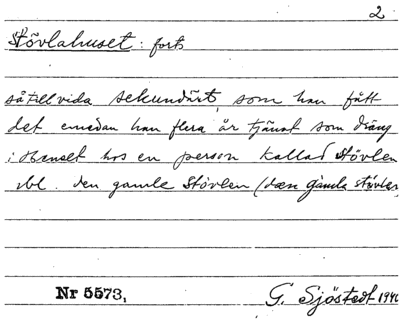 2
Stövlahuset: forts
såtillvida sekundärt, som han fått
det emedan han flera år tjänat som dräng
i huset hos en person kallad Stövlen
el. den gamle Stövlen (dæn gamla stövlen
Nr 5573,
G. Sjöstedt 194